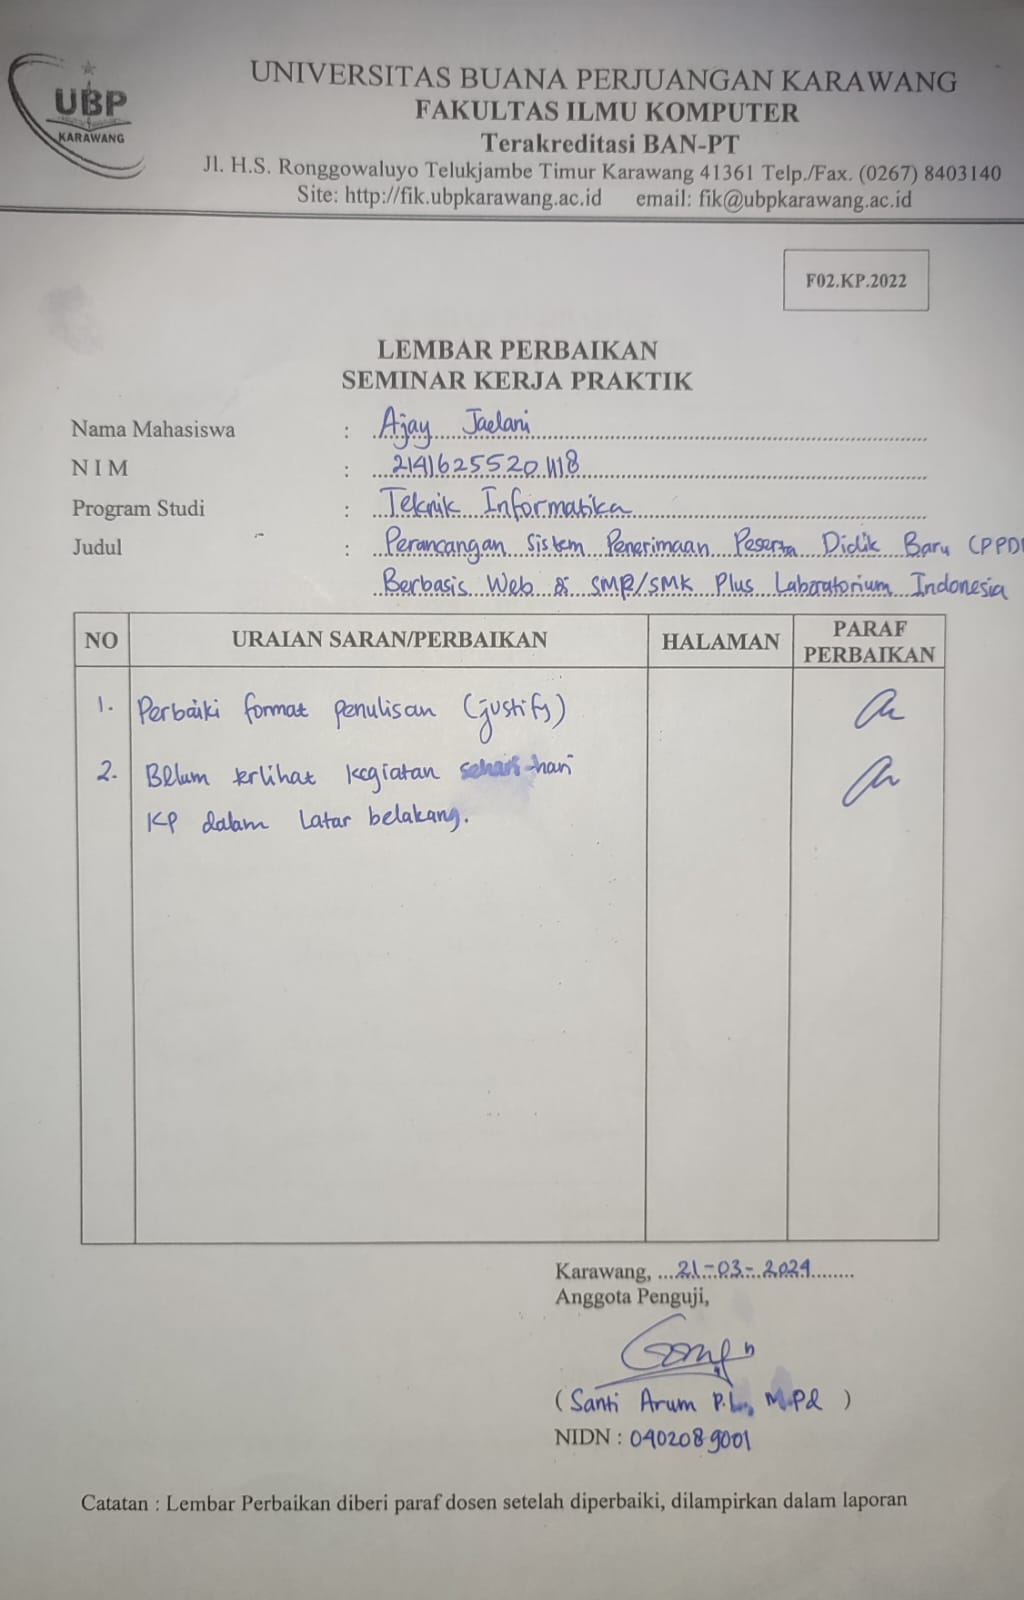 UBP
KARAWANG
UNIVERSITAS BUANA PERJUANGAN KARAWANG
FAKULTAS ILMU KOMPUTER
Terakreditasi BAN-PT
Jl. H.S. Ronggowaluyo Telukjambe Timur Karawang 41361 Telp./Fax. (0267) 8403140
Site: http://fik.ubpkarawang.ac.id email: fik@ubpkarawang.ac.id
F02.KP.2022
LEMBAR PERBAIKAN
SEMINAR KERJA PRAKTIK
Nama Mahasiswa : Ajay Jaelani
NIM : 21416255201118
Program Studi : Teknik Informatika
Judul : Perancangan Sistem Penerimaan Peserta Didik Baru (PPDB
Berbasis Web di SMP/SMK Plus Laboratorium Indonesia
NO URAIAN SARAN/PERBAIKAN HALAMAN PARAF PERBAIKAN
1. Perbaiki format penulisan (justify)
2. Belum terlihat kegiatan sehari-hari
KP dalam Latar belakang.
Karawang, 21-03-2024
Anggota Penguji,
(Santi Arum P.L., M.Pd)
NIDN : 0402089001
Catatan : Lembar Perbaikan diberi paraf dosen setelah diperbaiki, dilampirkan dalam laporan